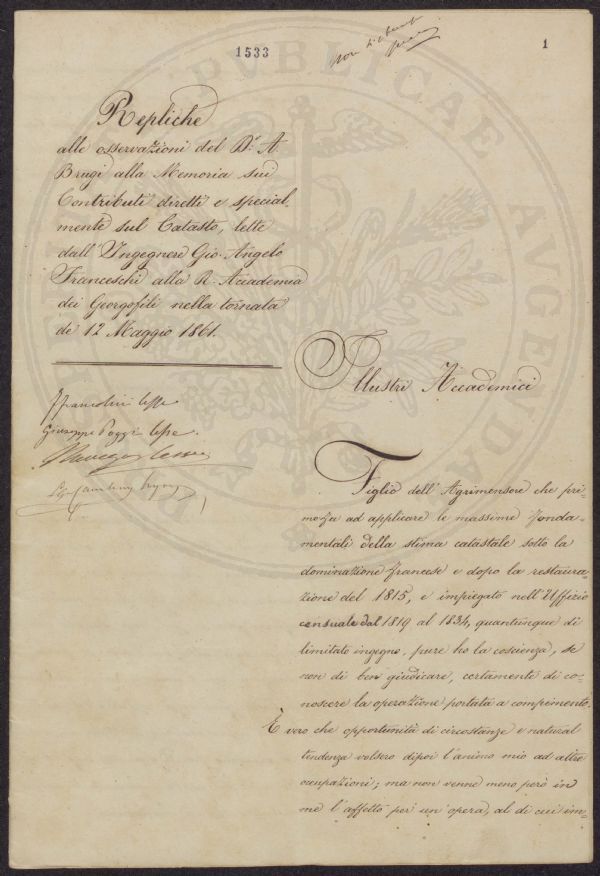 1533
1
Repliche
alle osservazioni del Dr. A.
Brugi alla Memoria sui
Contributi diretti e special-
mente sul Catasto, lette
dall'Ingegnere Gio. Angelo
Franceschi alla R. Accademia
dei Georgofili nella tornata
de' 12 Maggio 1861.
Francolini lesse
Giuseppe Poggi lesse.
Illustri Accademici
Figlio dell'Agrimensore che pri-
mo fu ad applicare le massime fonda-
mentali della stima catastale sotto la
dominazione francese e dopo la restaura-
zione del 1815, e impiegato nell'Uffizio
censuale dal 1819 al 1834, quantunque di
limitato ingegno, pure ho la coscienza, se
non di ben giudicare, certamente di co-
noscere la operazione portata a compimento.
È vero che opportunità di circostanze e natural
tendenza volsero dipoi l'animo mio ad altre
occupazioni; ma non venne meno però in
me l'affetto per un'opera, al di cui im-
PUBLICAE